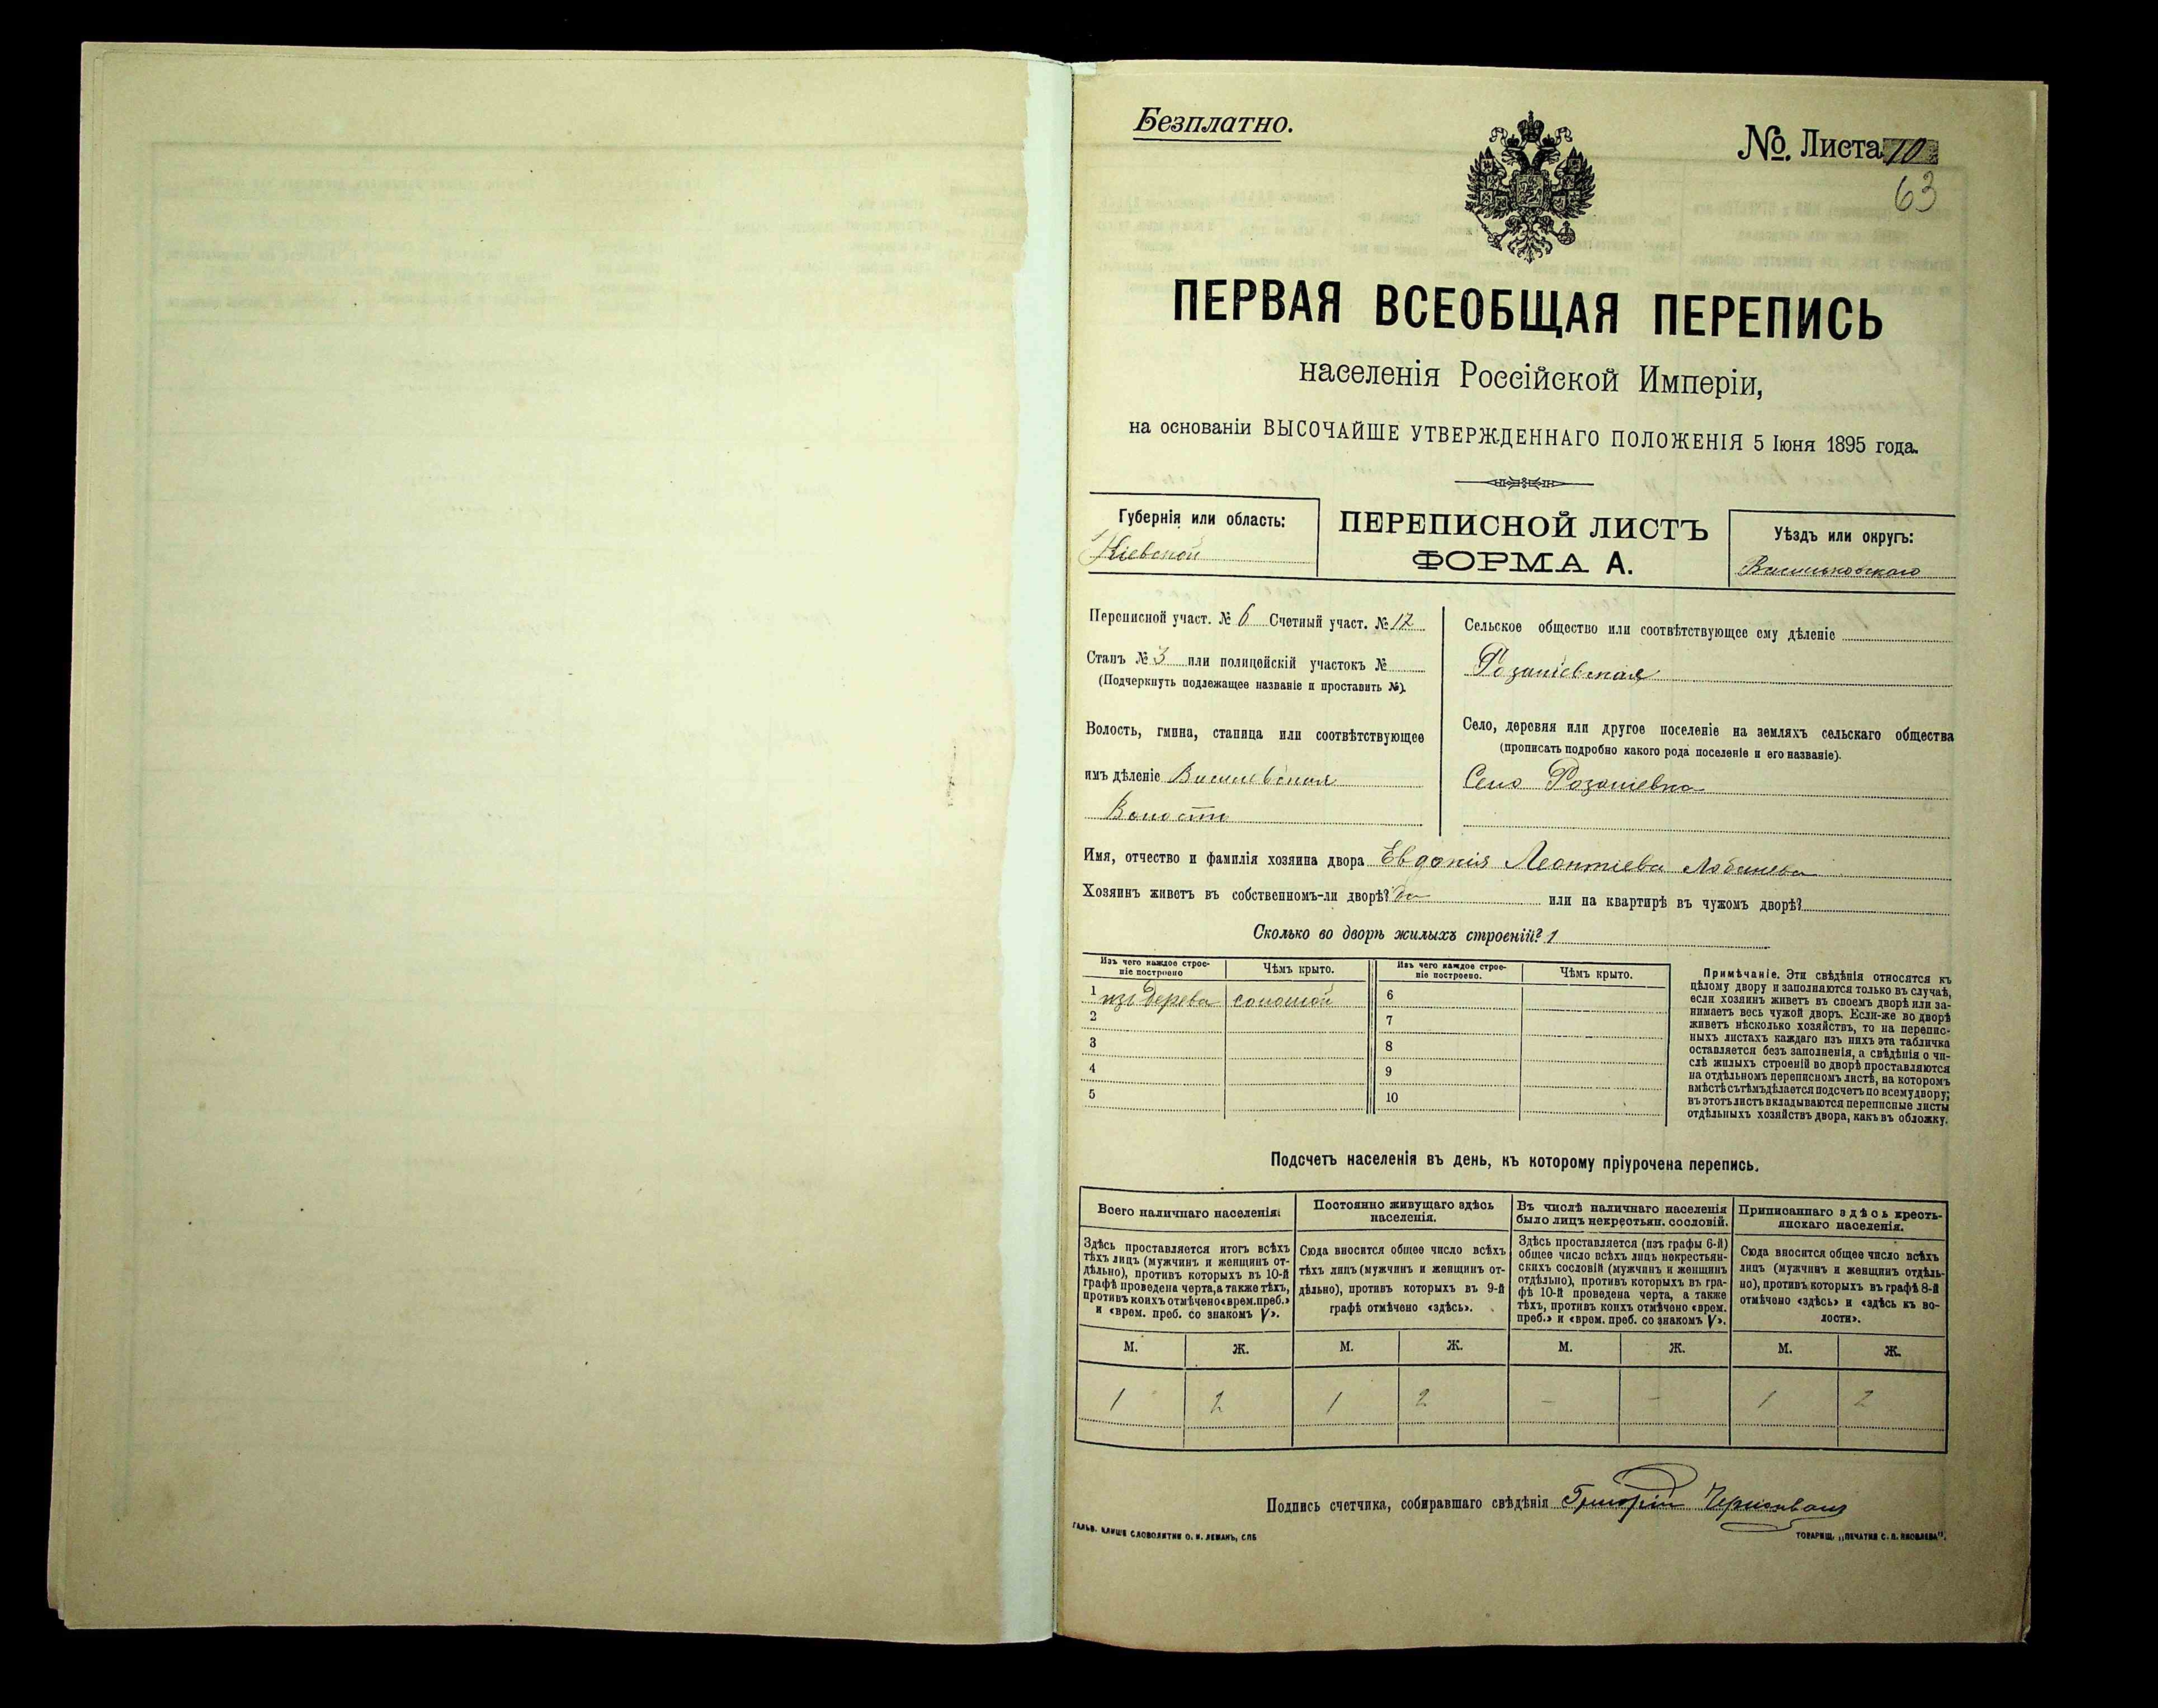 Безплатно.
No. Листа 10
63
ПЕРВАЯ ВСЕОБЩАЯ ПЕРЕПИСЬ
населенія Россійской Имперіи,
на основаніи ВЫСОЧАЙШЕ УТВЕРЖДЕННАГО ПОЛОЖЕНІЯ 5 Іюня 1895 года.
Губернія или область:
Кіевской
ПЕРЕПИСНОЙ ЛИСТЪ
ФОРМА А.
Уѣздъ или округъ:
Васильковскаго
Переписной участ. № 6 Счетный участ. № 12
Станъ № 3 или полицейскій участокъ №
(Подчеркнуть подлежащее названіе и проставить №).
Волость, гмина, станица или соотвѣтствующее
имъ дѣленіе
Волости
Сельское общество или соотвѣтствующее ему дѣленіе
Село, деревня или другое поселеніе на земляхъ сельскаго общества
(прописать подробно какого рода поселеніе и его названіе).
Село
Имя, отчество и фамилія хозяина двора Евдокія Леонтіева
Хозяинъ живетъ въ собственномъ-ли дворѣ? да или на квартирѣ въ чужомъ дворѣ?
Сколько во дворѣ жилыхъ строеній? 1
Изъ чего каждое строе-
ніе построено
Чѣмъ крыто.
Изъ чего каждое строе-
ніе построено.
Чѣмъ крыто.
1 изъ дерева соломой
2
3
4
5
6
7
8
9
10
Примѣчаніе. Эти свѣдѣнія относятся къ
цѣлому двору и заполняются только въ случаѣ,
если хозяинъ живетъ въ своемъ дворѣ или за-
нимаетъ весь чужой дворъ. Если-же во дворѣ
живетъ нѣсколько хозяйствъ, то на перепис-
ныхъ листахъ каждаго изъ нихъ эта табличка
оставляется безъ заполненія, а свѣдѣнія о чи-
слѣ жилыхъ строеній во дворѣ проставляются
на отдѣльномъ переписномъ листѣ, на которомъ
вмѣстѣ съ тѣмъ дѣлается подсчетъ по всему двору;
въ этотъ листъ вкладываются переписные листы
отдѣльныхъ хозяйствъ двора, какъ въ обложку.
Подсчетъ населенія въ день, къ которому пріурочена перепись.
Всего наличнаго населенія.
Здѣсь проставляется итогъ всѣхъ
тѣхъ лицъ (мужчинъ и женщинъ от-
дѣльно), противъ которыхъ въ 10-й
графѣ проведена черта, а также тѣхъ,
противъ коихъ отмѣчено «врем. преб.»
и «врем. преб. со знакомъ V».
Постоянно живущаго здѣсь
населенія.
Сюда вносится общее число всѣхъ
тѣхъ лицъ (мужчинъ и женщинъ от-
дѣльно), противъ которыхъ въ 9-й
графѣ отмѣчено «здѣсь».
Въ числѣ наличнаго населенія
было лицъ некрестьян. сословій.
Здѣсь проставляется (изъ графы 6-й)
общее число всѣхъ лицъ некрестьян-
скихъ сословій (мужчинъ и женщинъ
отдѣльно), противъ которыхъ въ гра-
фѣ 10-й проведена черта, а также
тѣхъ, противъ коихъ отмѣчено «врем.
преб.» и «врем. преб. со знакомъ V».
Приписаннаго здѣсь кресть-
янскаго населенія.
Сюда вносится общее число всѣхъ
лицъ (мужчинъ и женщинъ отдѣль-
но), противъ которыхъ въ графѣ 8-й
отмѣчено «здѣсь» и «здѣсь къ во-
лости».
М. Ж. М. Ж. М. Ж. М. Ж.
1 2 1 2 – – 1 2
Подпись счетчика, собиравшаго свѣдѣнія Григорій
ГАЛЬВ. КЛИШЕ СЛОВОЛИТНИ О. И. ЛЕМАНЪ, СПБ
ТОВАРИЩ. „ПЕЧАТНЯ С. П. ЯКОВЛЕВА".